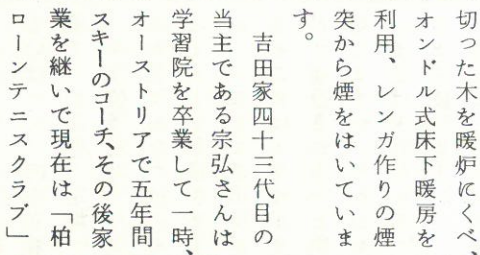 切った木を暖炉にくべ、
オンドル式床下暖房を
利用、レンガ作りの煙
突から煙をはいていま
す。
吉田家四十三代目の
当主である宗弘さんは
学習院を卒業して一時、
オーストリアで五年間
スキーのコーチ、その後家
業を継いで現在は「柏
ローンテニスクラブ」